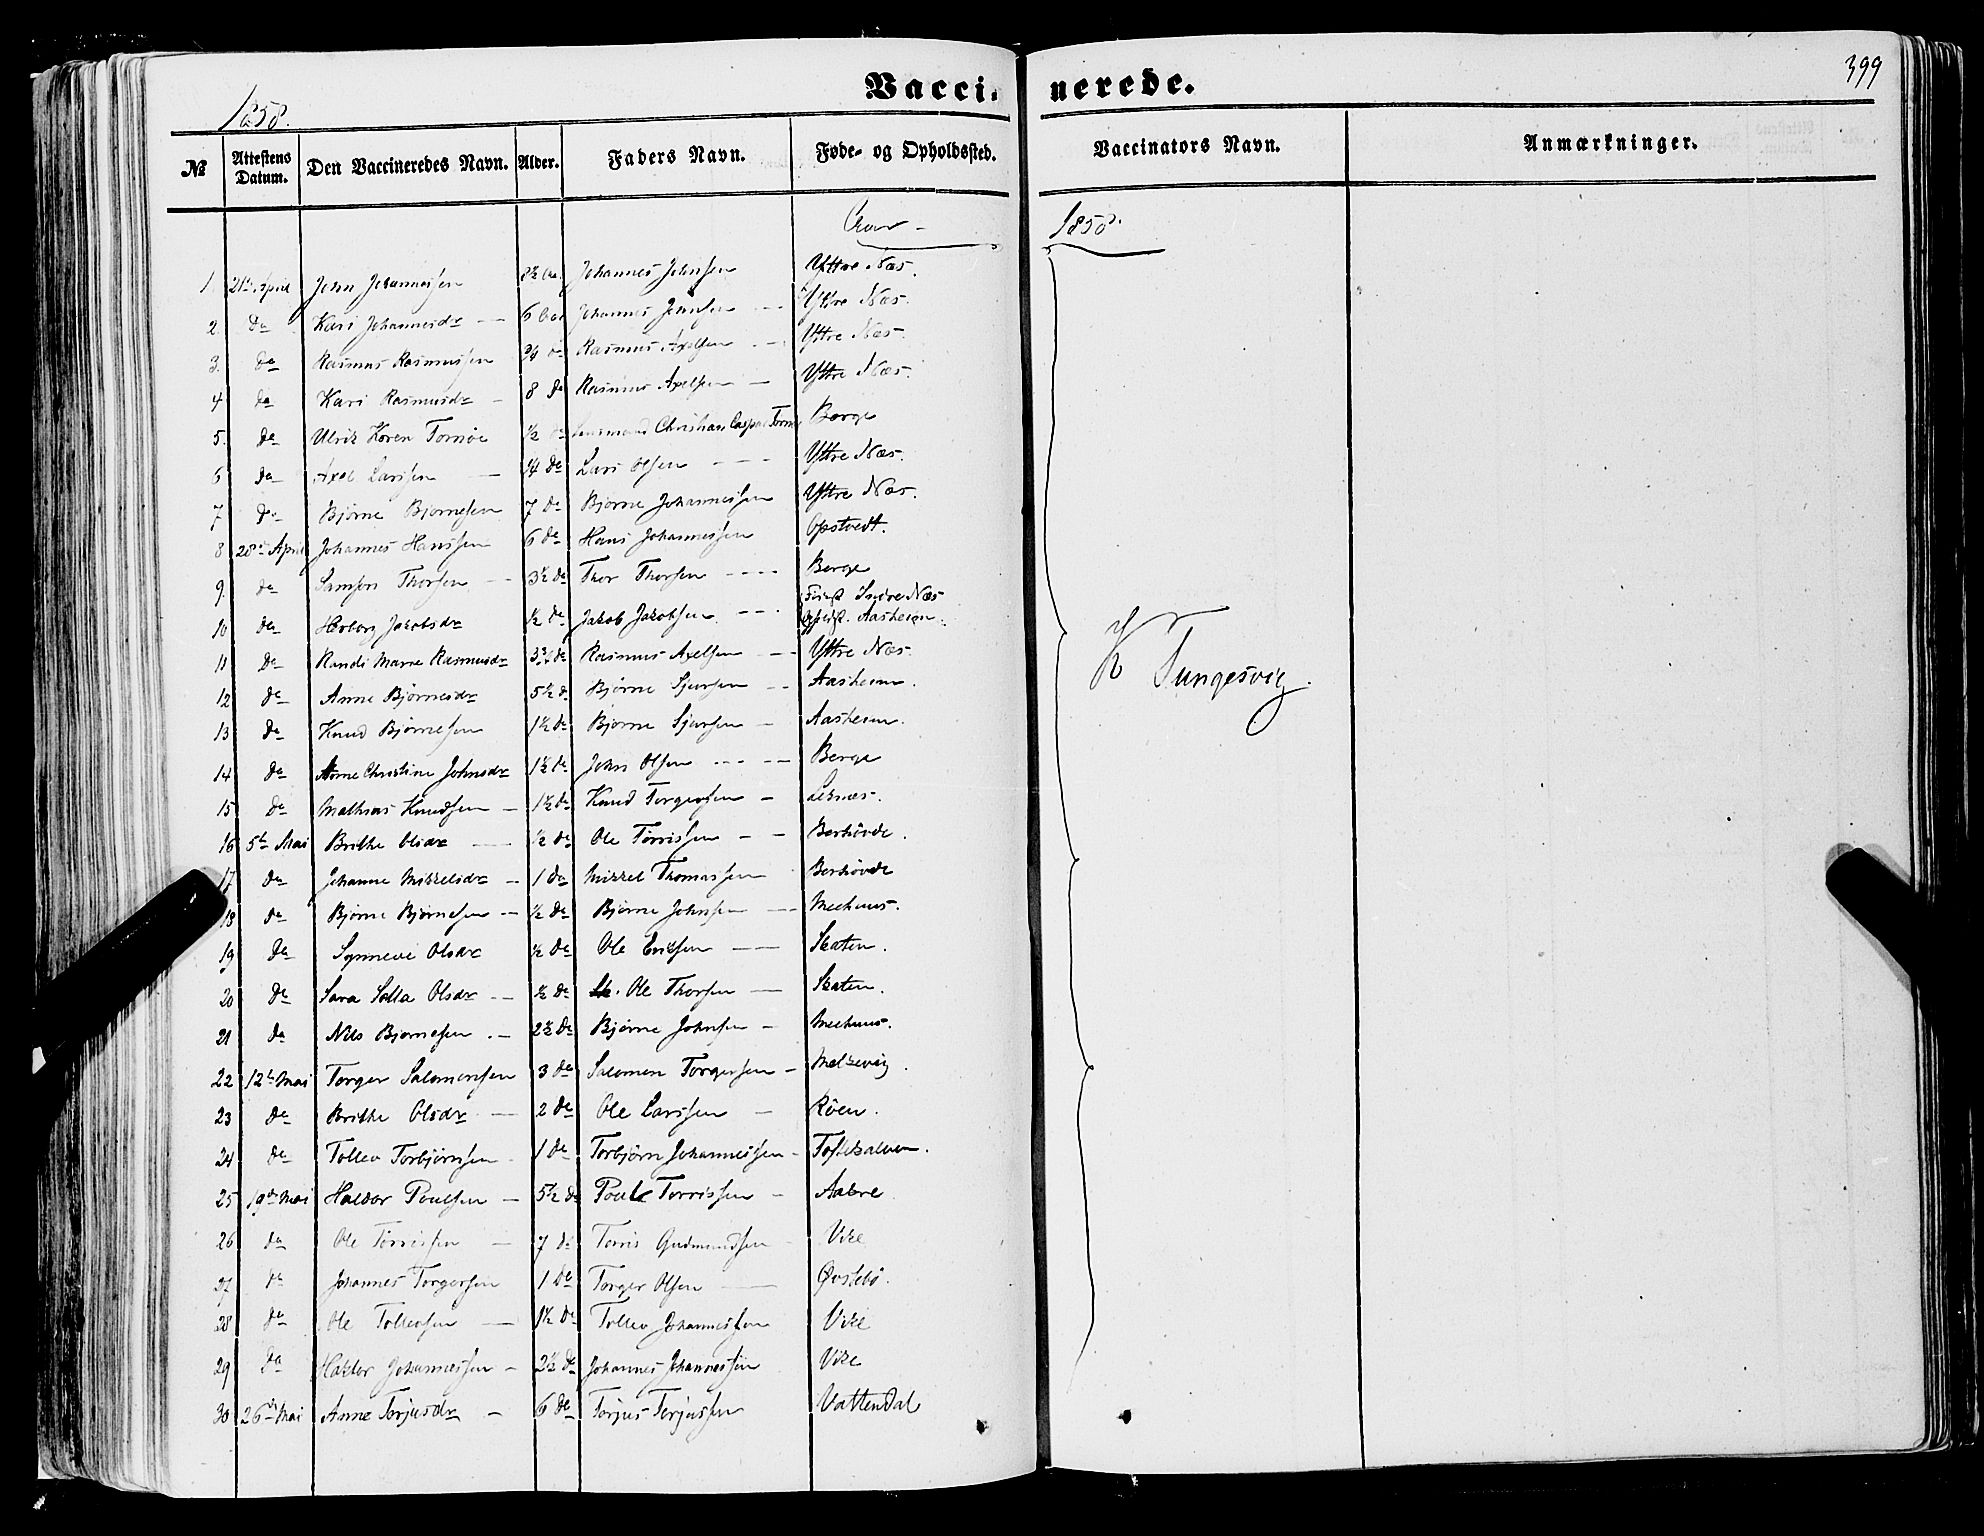 Vaccinerede.
399
1858.
№ Attestens Datum. Den Vaccineredes Navn. Alder. Faders Navn. Føde- og Opholdssted. Vaccinators Navn. Anmærkninger.
Aar 1858.
1. 21de April John Johannessen Johannes Johnsen Yttre Næs.
2. do Kari Johannesdr 6 Johannes Johnsen Yttre Næs.
3. do Rasmus Rasmussen Rasmus Axelsen Yttre Næs.
4 do Kari Rasmusdr 8 do Rasmus Axelsen Yttre Næs.
5. do Ulrik Koren Tornöe ½ do Lensmand Christian Caspar Berge
6 do Axel Larssen do Lars Olsen Yttre Næs.
7 do Bjørne Bjørnesen 7 do Bjørne Johannessen Yttre Næs.
8 28de April Johannes Hanssen 6 do Hans Johannessen Opstvedt.
9. do Samson Thorsen 3½ do Thor Thorsen Berge
10 do Herborg Jakobsdr ½ do Jakob Jakobsen Indre Næs Aasheim.
11 do Randi Marie Rasmusdr do Rasmus Axelsen Yttre Næs.
12 do Anne Bjørnesdr 5½ do Bjørne Sjursen Aasheim.
13 do Knud Bjørnesen 1½ do Bjørne Sjursen Aasheim.
14 do Anne Christine Johnsdr 1½ do John Olsen Berge
15 do Mathias Knudsen 1½ do Knud Torgersen Leknæs.
16 5te Mai Brithe Olsdr ½ do Ole Tørrissen Berhövde.
17 do Johanne Mikkelsdr 1 do Mikkel Thomassen Berhövde
18 do Bjørne Bjørnesen ½ do Bjørne Johnsen Meehuus.
19 do Synneve Olsdr ½ do Ole Eriksen Skaten.
20 do Sara Salla Olsdr ½ do Ole Thorsen Skaten.
21 do Nils Bjørnesen 2½ do Bjørne Johnsen Meehuus.
22 12te Mai Torger Salomonsen 3 do Salomon Torgersen Melkevig.
23 do Brithe Olsdr 2 do Ole Larssen Röen.
24 do Tollev Torbjørnsen 1 do Torbjørn Johannessen
25 19de Mai Haldor Poulsen 5½ do Poul Tørrissen Aakre
26 do Ole Tørrissen 7 do Tørris Gudmundsen Vike
27 do Johannes Torgersen 1 do Torger Olsen Østebö.
28 do Ole Tollevsen 1½ do Tollev Johannessen Vike
29 do Haldor Johannessen 2½ do Johannes Johannessen Vike
30 26de Mai Anne Torjusdr 6 do Torjus Torjussen Vattendal
K Tungesvig.